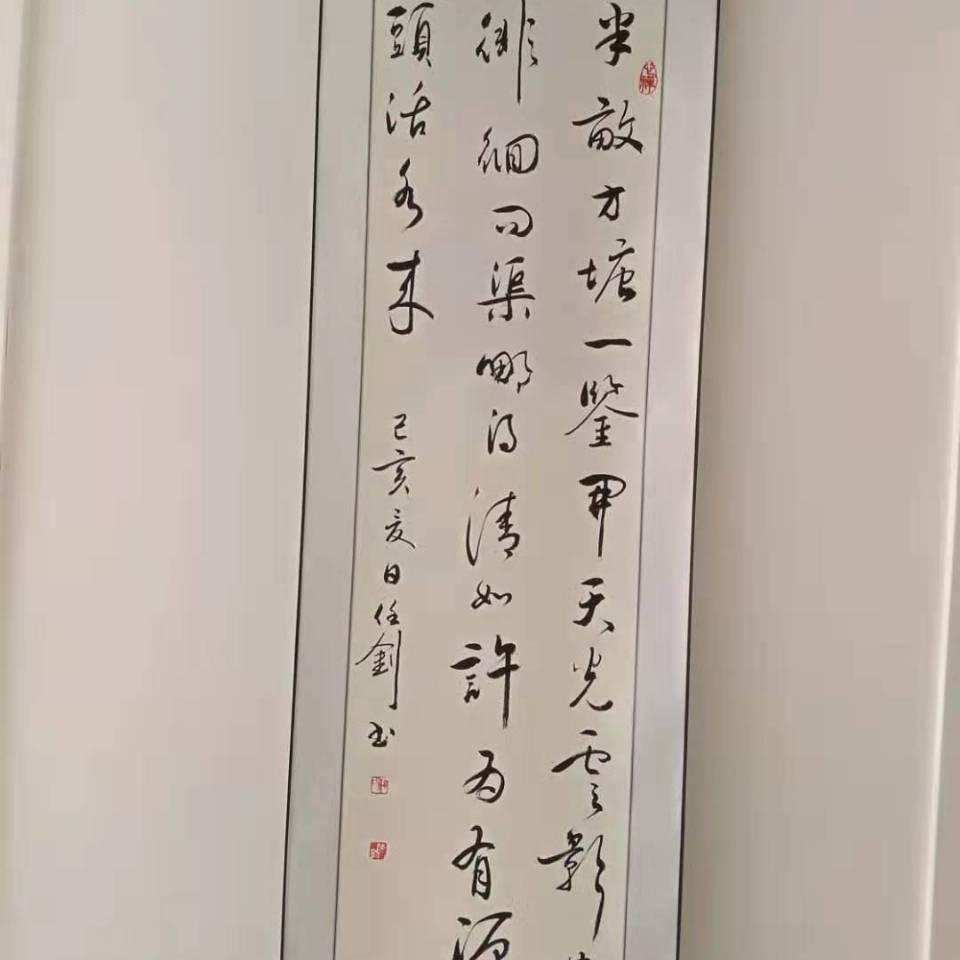 半畝方塘一鑒開天光雲影
徘徊问渠哪得清如許为有源
頭活水来
己亥夏日任釗书